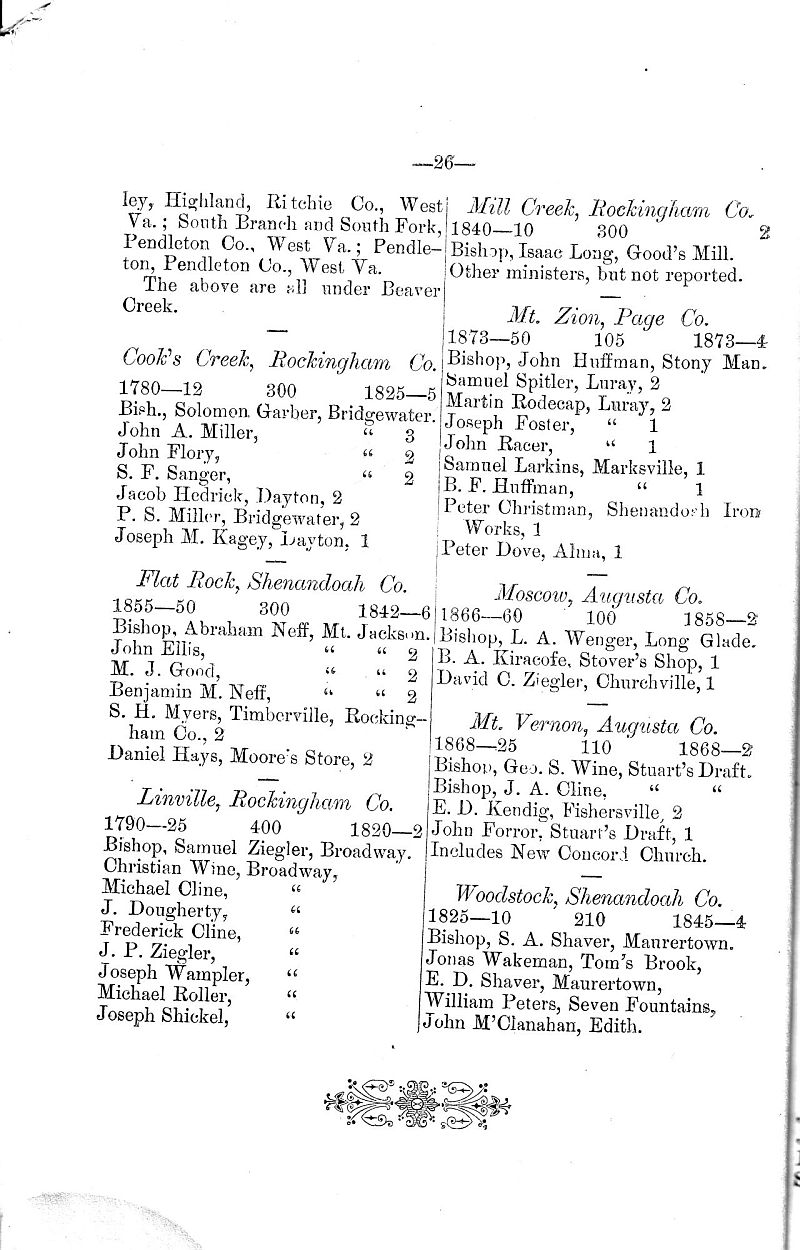 —26—
ley, Highland, Ritchie Co., West
Va.; South Branch and South Fork,
Pendleton Co., West Va.; Pendle-
ton, Pendleton Co., West Va.
The above are all under Beaver
Creek.
Cook's Creek, Rockingham Co.
1780—12 300 1825—5
Bish., Solomon Garber, Bridgewater.
John A. Miller, “ 3
John Flory, “ 2
S. F. Sanger, “ 2
Jacob Hedrick, Dayton, 2
P. S. Miller, Bridgewater, 2
Joseph M. Kagey, Dayton, 1
Flat Rock, Shenandoah Co.
1855—50 300 1842—6
Bishop, Abraham Neff, Mt. Jackson.
John Ellis, “ “ 2
M. J. Good, “ “ 2
Benjamin M. Neff, “ “ 2
S. H. Myers, Timberville, Rocking-
ham Co., 2
Daniel Hays, Moore's Store, 2
Linville, Rockingham Co.
1790—25 400 1820—2
Bishop, Samuel Ziegler, Broadway.
Christian Wine, Broadway,
Michael Cline, “
J. Dougherty, “
Frederick Cline, “
J. P. Ziegler, “
Joseph Wampler, “
Michael Roller, “
Joseph Shickel, “
Mill Creek, Rockingham Co.
1840—10 300 2
Bishop, Isaac Long, Good's Mill.
Other ministers, but not reported.
Mt. Zion, Page Co.
1873—50 105 1873—4
Bishop, John Huffman, Stony Man.
Samuel Spitler, Luray, 2
Martin Rodecap, Luray, 2
Joseph Foster, “ 1
John Racer, “ 1
Samuel Larkins, Marksville, 1
B. F. Huffman, “ 1
Peter Christman, Shenandoah Iron
Works, 1
Peter Dove, Alma, 1
Moscow, Augusta Co.
1866—60 100 1858—2
Bishop, L. A. Wenger, Long Glade.
B. A. Kiracofe, Stover's Shop, 1
David C. Ziegler, Churchville, 1
Mt. Vernon, Augusta Co.
1868—25 110 1868—2
Bishop, Geo. S. Wine, Stuart's Draft.
Bishop, J. A. Cline, “ “
E. D. Kendig, Fishersville, 2
John Forror, Stuart's Draft, 1
Includes New Concord Church.
Woodstock, Shenandoah Co.
1825—10 210 1845—4
Bishop, S. A. Shaver, Maurertown.
Jonas Wakeman, Tom's Brook,
E. D. Shaver, Maurertown,
William Peters, Seven Fountains,
John M'Clanahan, Edith.